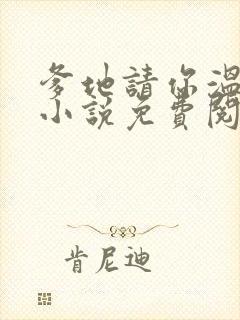 爹地請你溫
小說免費閱
肯尼迪